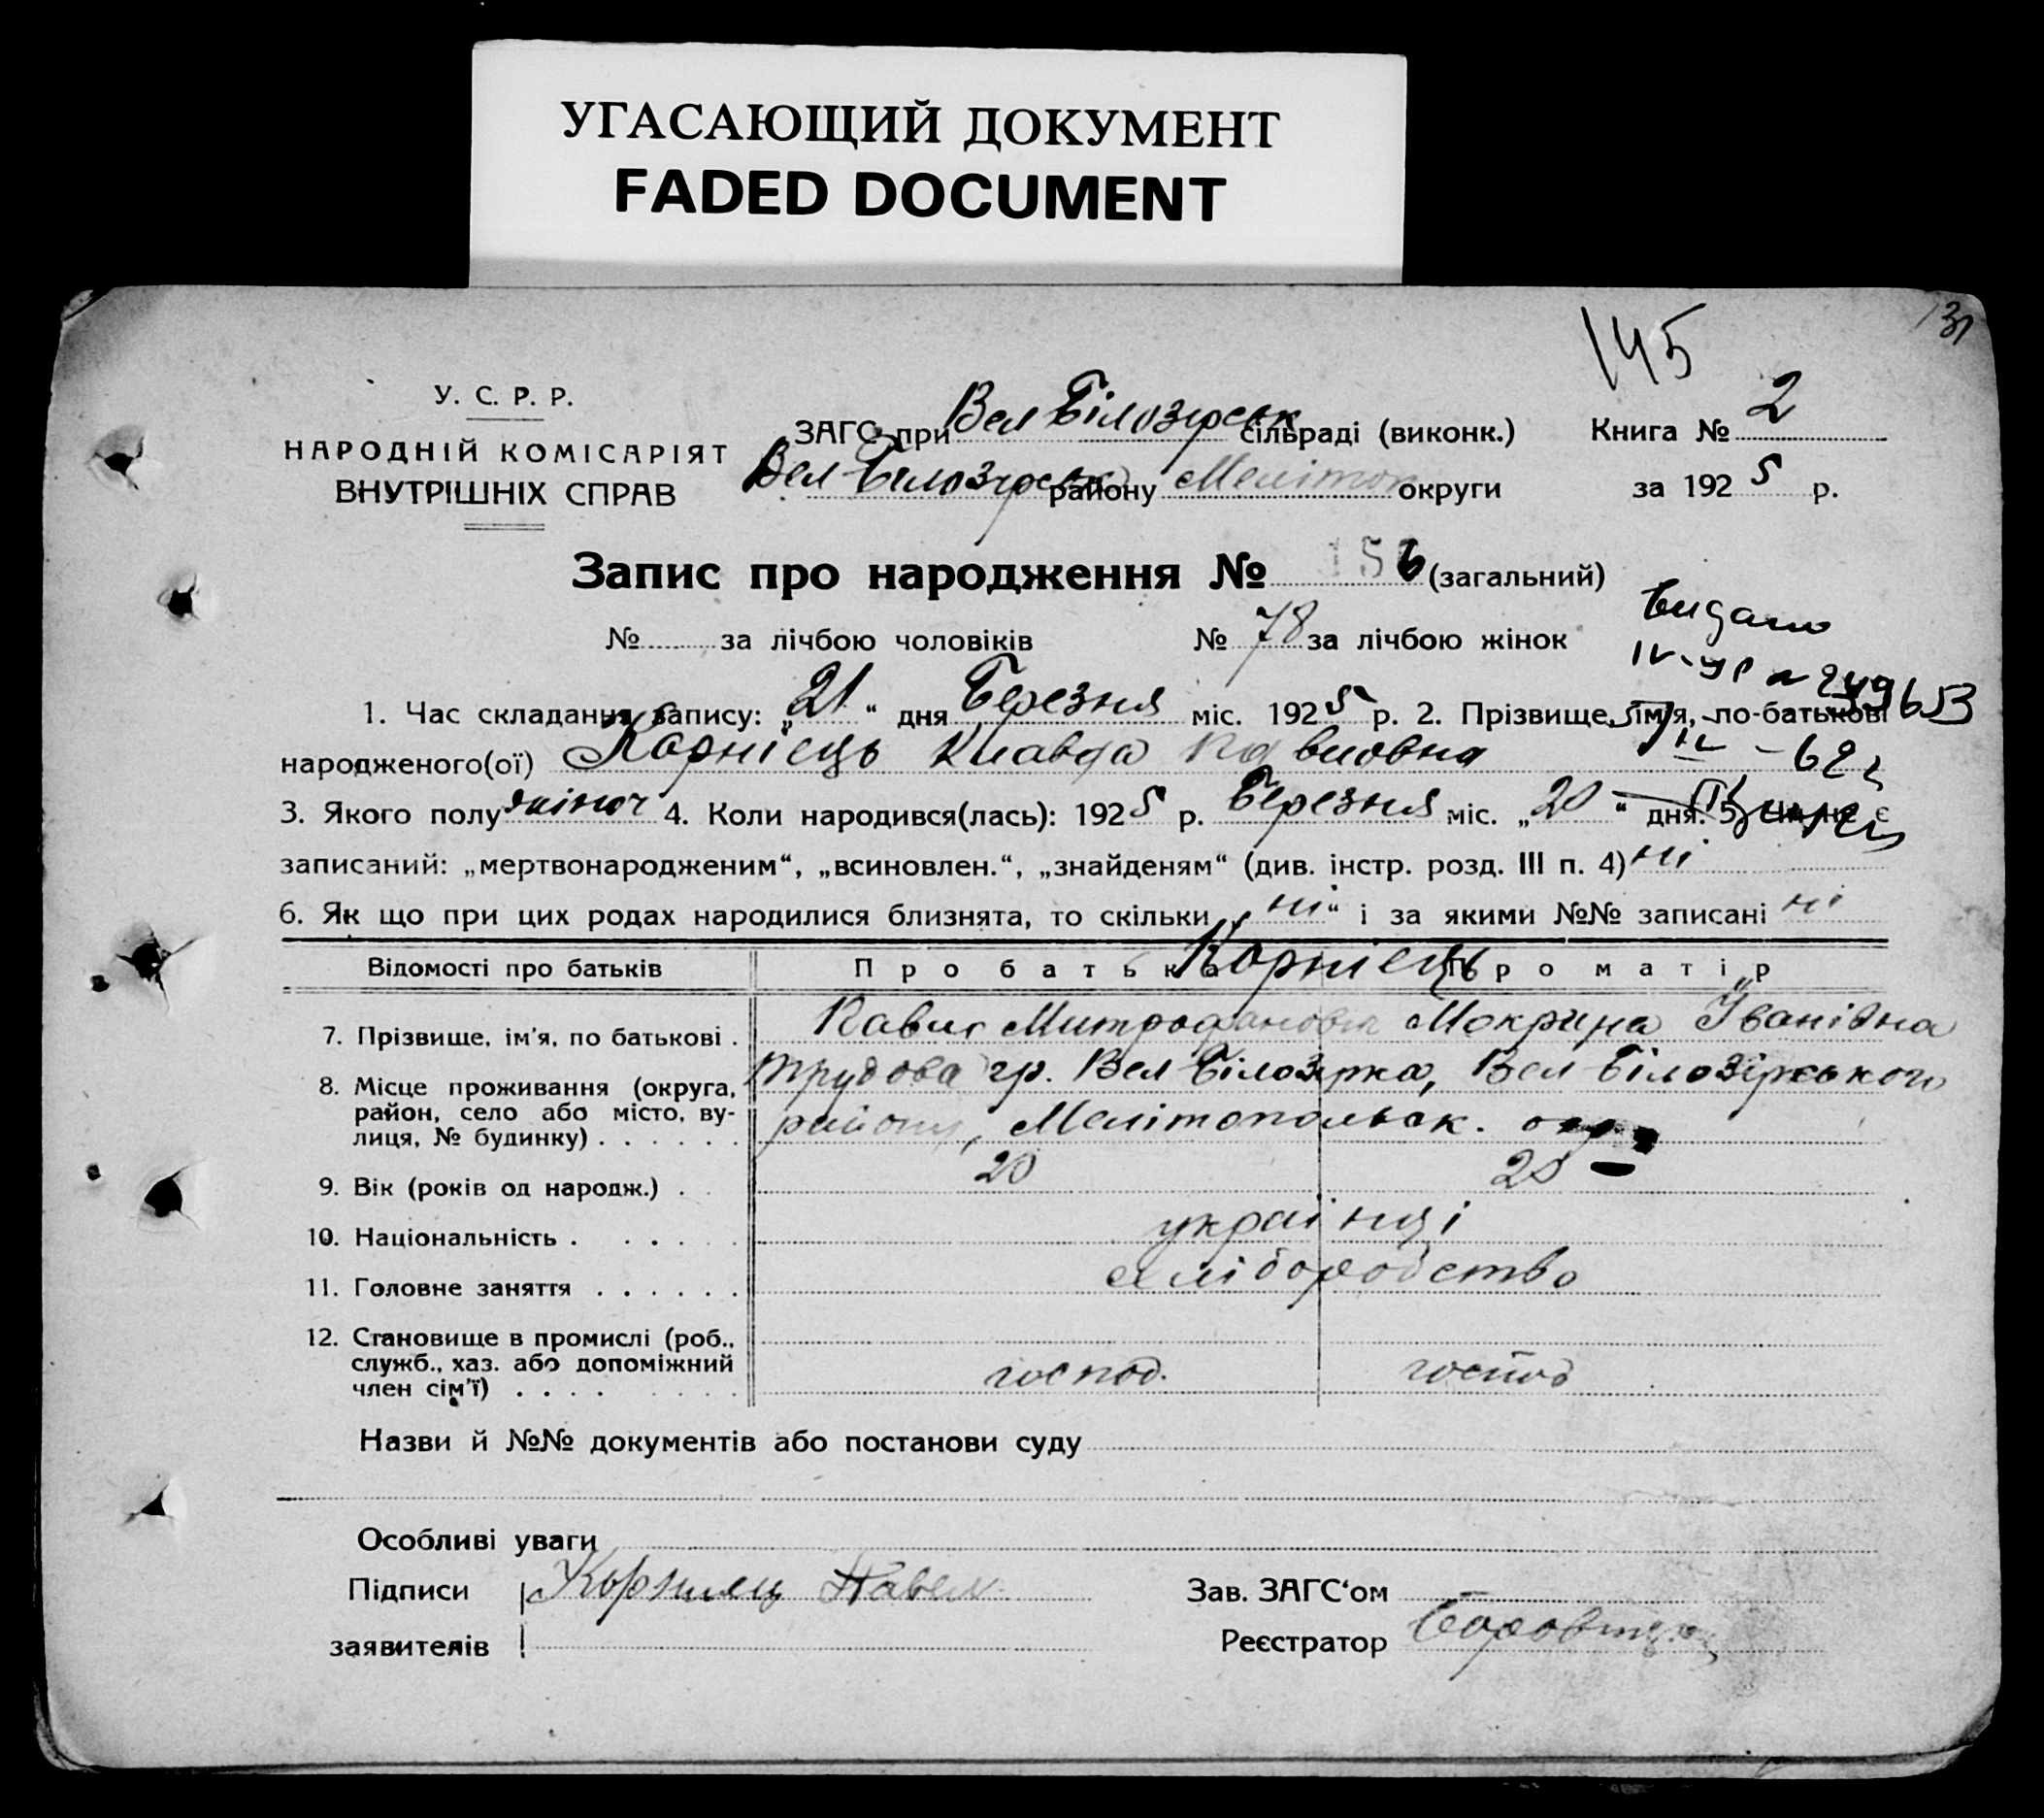 УГАСАЮЩИЙ ДОКУМЕНТ
FADED DOCUMENT
145
131
У. С. Р. Р.
НАРОДНІЙ КОМІСАРІЯТ
ВНУТРІШНІХ СПРАВ
ЗАГС при Вел Білозірськ сільраді (виконк.)
Вел Білозірськ району Мелітоп округи
Книга № 2
за 1925 р.
Запис про народження № 156 (загальний)
№ за лічбою чоловіків № 78 за лічбою жінок
видано
1. Час складання запису: „21“ дня Березня міс. 1925 р. 2. Прізвище, ім'я, по-батькові
народженого(ої) Корнієць Клавда Павловна
3. Якого полу жіноч 4. Коли народився(лась): 1925 р. Березня міс. „20“ дня. 5. Чи не є
записаний: „мертвонародженим“, „всиновлен.“, „знайденям“ (див. інстр. розд. III п. 4) ні
6. Як що при цих родах народилися близнята, то скільки „ні“ і за якими №№ записані ні
Відомості про батьків Про батька Про матір
Корнієць
7. Прізвище, ім'я, по батькові . Павло Митрофанович Мокрина Іванівна
8. Місце проживання (округа, район, село або місто, вулиця, № будинку) . . . . . . Трудова гр. Вел Білозірка, Вел Білозірського
району, Мелітопольск. окр
9. Вік (років од народж.) . . 20 20
10. Національність . . . . . . українці
11. Головне заняття . . . . . . хліборобство
12. Становище в промислі (роб., служб., хаз. або допоміжний член сім'ї) . . . . господ. господ
Назви й №№ документів або постанови суду
Особливі уваги
Підписи заявителів Корниец Павел
Зав. ЗАГС‘ом
Реєстратор